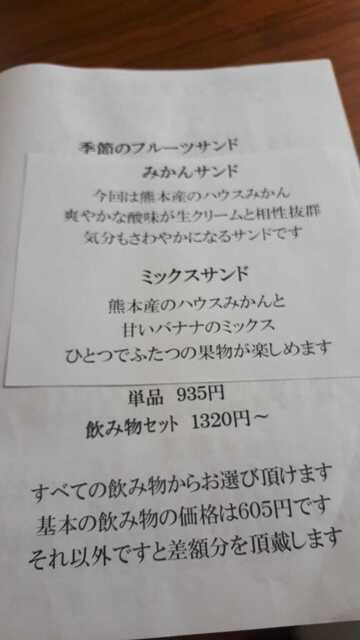 季節のフルーツサンド
みかんサンド
今回は熊本産のハウスみかん
爽やかな酸味が生クリームと相性抜群
気分もさわやかになるサンドです
ミックスサンド
熊本産のハウスみかんと
甘いバナナのミックス
ひとつでふたつの果物が楽しめます
単品 935円
飲み物セット 1320円～
すべての飲み物からお選び頂けます
基本の飲み物の価格は605円です
それ以外ですと差額分を頂戴します